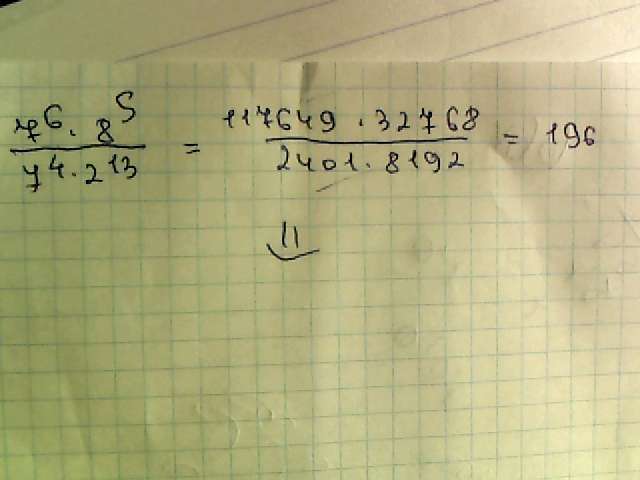 7^6 · 8^5 / 7^4 · 2^13 = 117649 · 32768 / 2401 · 8192 = 196